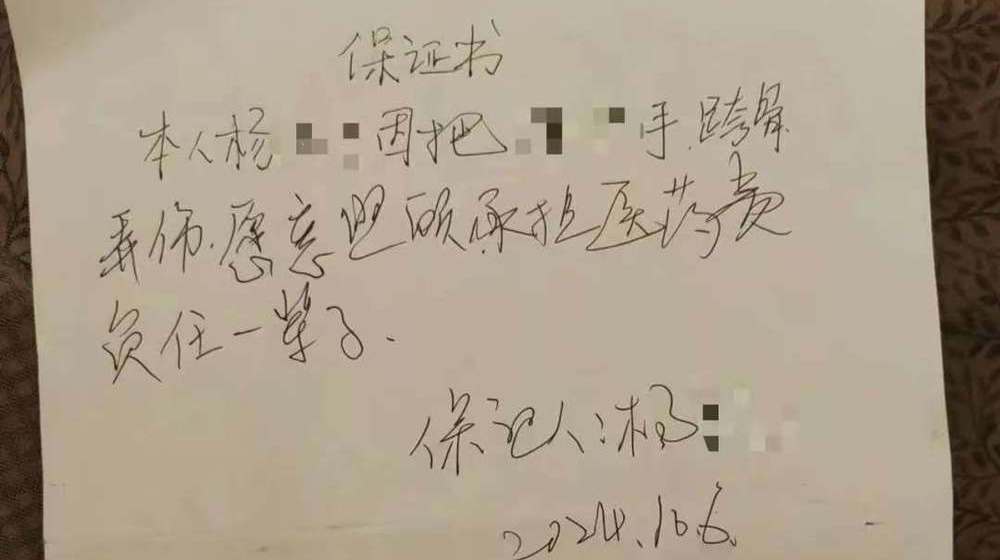 保证书
本人杨 因把 手.跨骨
弄伤.愿意照顾承担医药费
负任一辈子.
保证人:杨
2024.10.6.